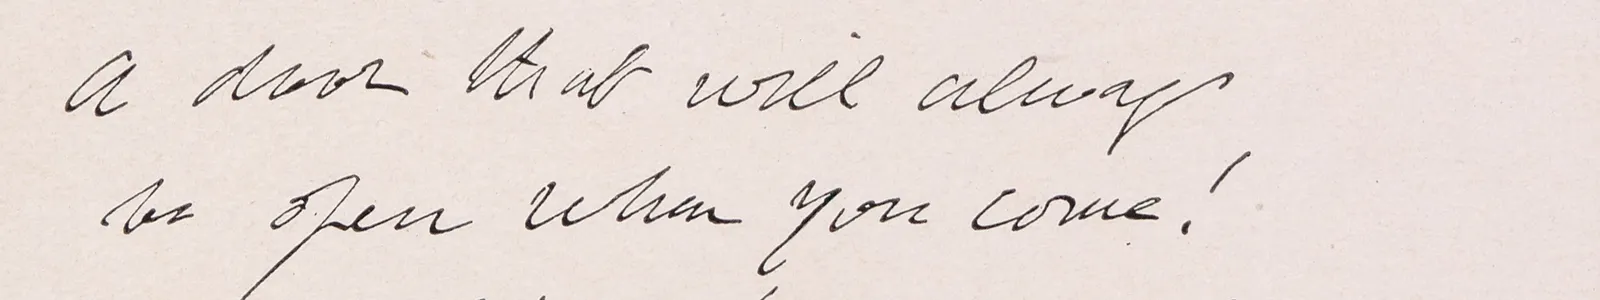 a door that will always
be open when you come!